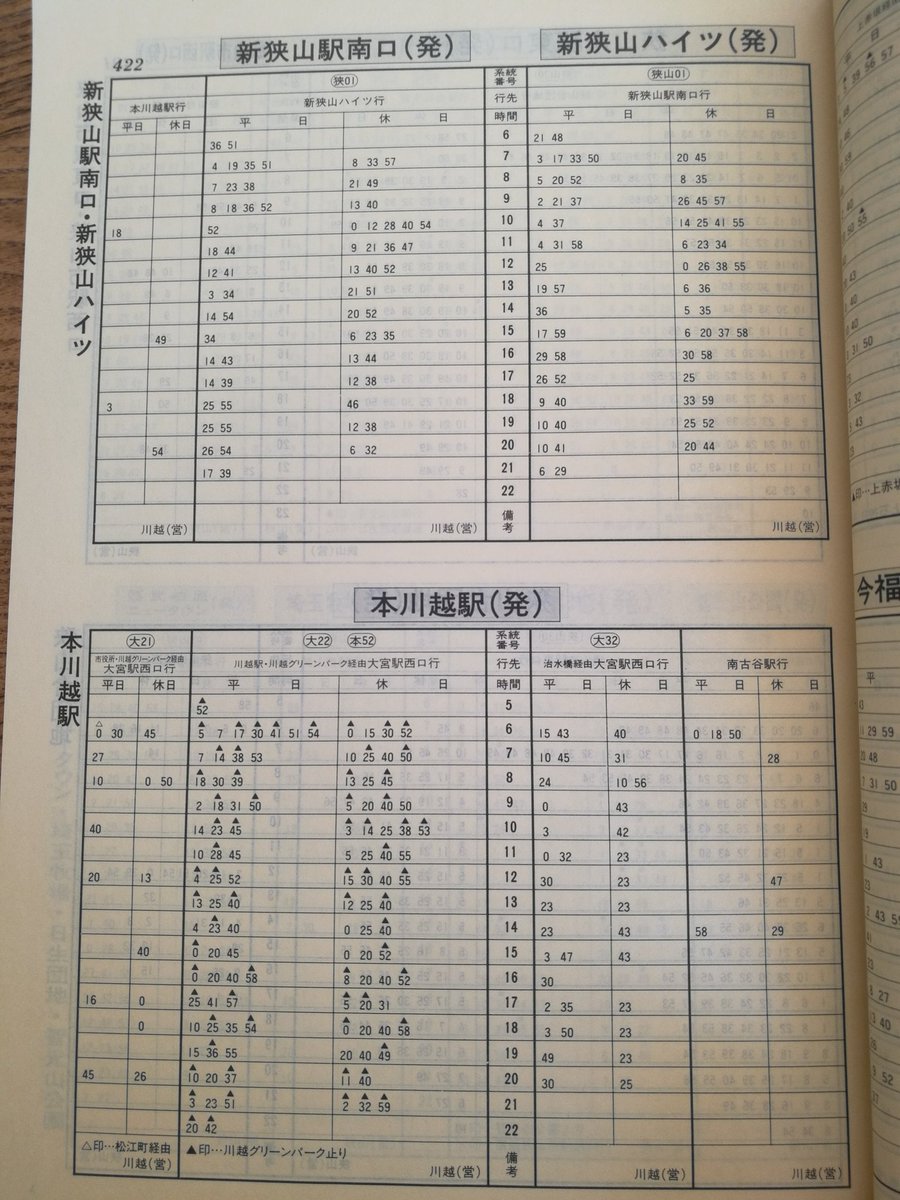 422
新狭山駅南口・新狭山ハイツ
新狭山駅南口(発) 新狭山ハイツ(発)
狭01 系統番号 狭山01
本川越駅行 新狭山ハイツ行 行先 新狭山駅南口行
平日 休日 平日 休日 時間 平日 休日
36 51 6 21 48
4 19 35 51 8 33 57 7 3 17 33 50 20 45
7 23 38 21 49 8 5 20 52 8 35
8 18 36 52 13 40 9 2 21 37 26 45 57
18 52 0 12 28 40 54 10 4 37 14 25 41 55
18 44 9 21 36 47 11 4 31 58 6 23 34
12 41 13 40 52 12 25 0 26 38 55
3 34 21 51 13 19 57 6 36
14 54 20 52 14 36 5 35
49 34 6 23 35 15 17 59 6 20 37 58
14 43 13 44 16 29 58 30 58
14 39 12 38 17 26 52 25
3 25 55 46 18 9 40 33 59
25 55 12 38 19 10 40 25 52
54 26 54 6 32 20 10 41 20 44
17 39 21 6 29
22
川越(営) 川越(営) 備考 川越(営)
本川越駅
本川越駅(発)
大21 大22 本52 系統番号 大32
市役所・川越グリーンパーク経由 大宮駅西口行 川越駅・川越グリーンパーク経由大宮駅西口行 行先 治水橋経由大宮駅西口行 南古谷駅行
平日 休日 平日 休日 時間 平日 休日 平日 休日
▲52 5
△0 30 45 ▲5 7 ▲17 ▲30 ▲41 51 ▲54 0 15 ▲30 ▲52 6 15 43 40 0 18 50
27 7 ▲14 ▲38 53 10 ▲25 40 ▲50 7 10 45 31 28
10 0 50 ▲18 30 ▲39 13 ▲25 ▲45 8 24 10 56
2 ▲18 31 ▲50 ▲5 20 ▲40 50 9 0 43
40 14 ▲23 ▲45 ▲3 ▲14 25 ▲38 ▲53 10 3 42
10 ▲28 45 5 25 ▲40 55 11 0 32 23
20 13 ▲4 ▲25 52 ▲15 ▲30 40 ▲55 12 30 23 47
▲13 25 ▲40 12 ▲25 40 13 23 23
4 ▲23 40 0 25 ▲40 14 23 43 58 29
40 ▲0 20 45 0 20 ▲52 15 3 47 43
▲0 20 40 ▲58 ▲8 20 40 ▲52 16 30
16 0 ▲25 41 ▲57 ▲5 ▲20 31 17 2 35 23
0 10 ▲25 35 ▲54 ▲0 20 40 ▲58 18 3 50 23
15 ▲36 55 20 40 ▲49 19 49 23
45 26 ▲10 20 ▲37 ▲11 ▲40 20 30 25
▲3 23 ▲51 ▲2 ▲32 ▲59 21
▲20 ▲42 22
△印…松江町経由 ▲印…川越グリーンパーク止り
川越(営) 川越(営) 備考 川越(営) 川越(営)
今福